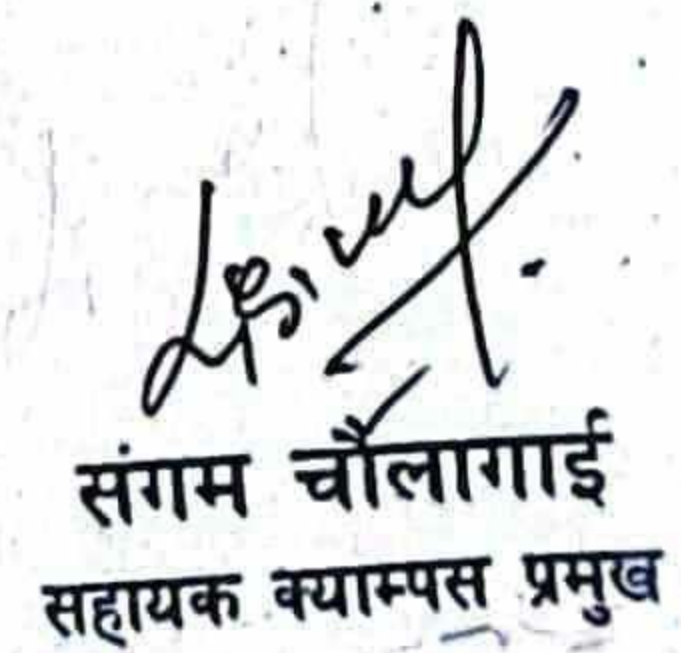 संगम चौलागाई
सहायक क्याम्पस प्रमुख